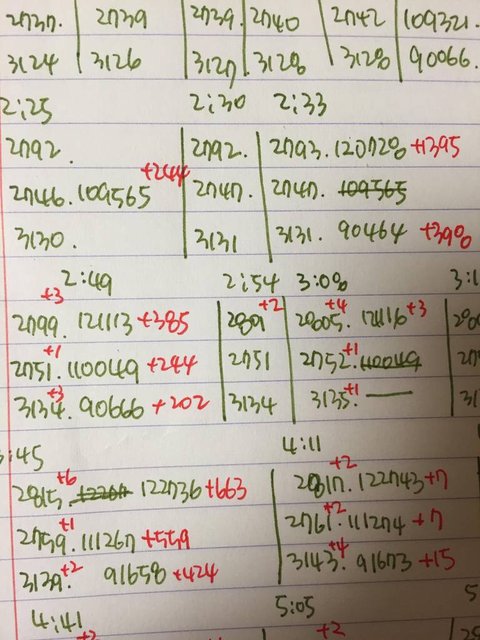 2737. 2739 2739. 2740 2742 109321.
3124 3126 3127. 3128 3128 90066.
2:25 2:30 2:33
2792. 2792. 2793. 120728 +1395
+244
2746. 109565 2747. 2747. 109565
3130. 3131 3131. 90464 +398
2:49 2:54 3:08 3:1
+3 +2 +4
2799. 121113 +385 2801 2805. 121116 +3 280
+1 +1
2751. 110049 +244 2751 2752. 110049
+3 +1
3134. 90666 +202 3134 3135. — 31
:45 4:11
+6 +2
2815. 122736 +663 2817. 122743 +7
+1 +2
2759. 111267 +559 2761. 111274 +7
+2 +4
3139. 91658 +424 3143. 91673 +15
4:41 5:05 5
+2 +2